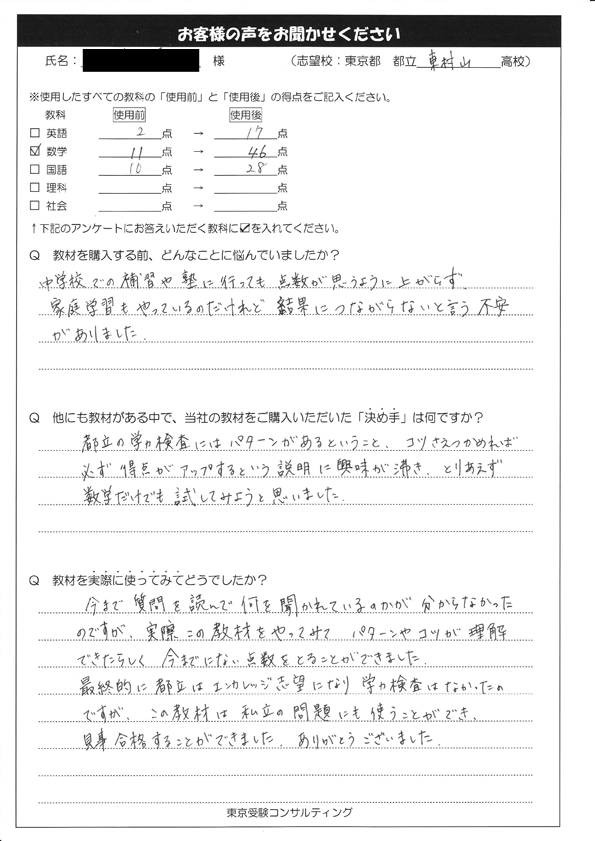 お客様の声をお聞かせください
氏名： 様 （志望校：東京都 都立 東村山 高校）
※使用したすべての教科の「使用前」と「使用後」の得点をご記入ください。
教科 使用前 使用後
□ 英語 2 点 → 17 点
☑ 数学 11 点 → 46 点
□ 国語 10 点 → 28 点
□ 理科 点 → 点
□ 社会 点 → 点
↑下記のアンケートにお答えいただく教科に☑を入れてください。
Q 教材を購入する前、どんなことに悩んでいましたか？
中学校での補習や塾に行っても点数が思うように上がらず、
家庭学習もやっているのだけれど結果につながらないと言う不安
がありました.
Q 他にも教材がある中で、当社の教材をご購入いただいた「決め手」は何ですか？
都立の学力検査にはパターンがあるということ、コツさえつかめれば
必ず得点がアップするという説明に興味が沸き、とりあえず
数学だけでも試してみようと思いました.
Q 教材を実際に使ってみてどうでしたか？
今まで質問を読んで何を聞かれているのかが分からなかった
のですが、実際この教材をやってみて パターンやコツが理解
できたらしく 今までにない点数をとることができました.
最終的に都立はエンカレッジ志望になり学力検査はなかったの
ですが、この教材は私立の問題にも使うことができ、
見事合格することができました. ありがとうございました.
東京受験コンサルティング